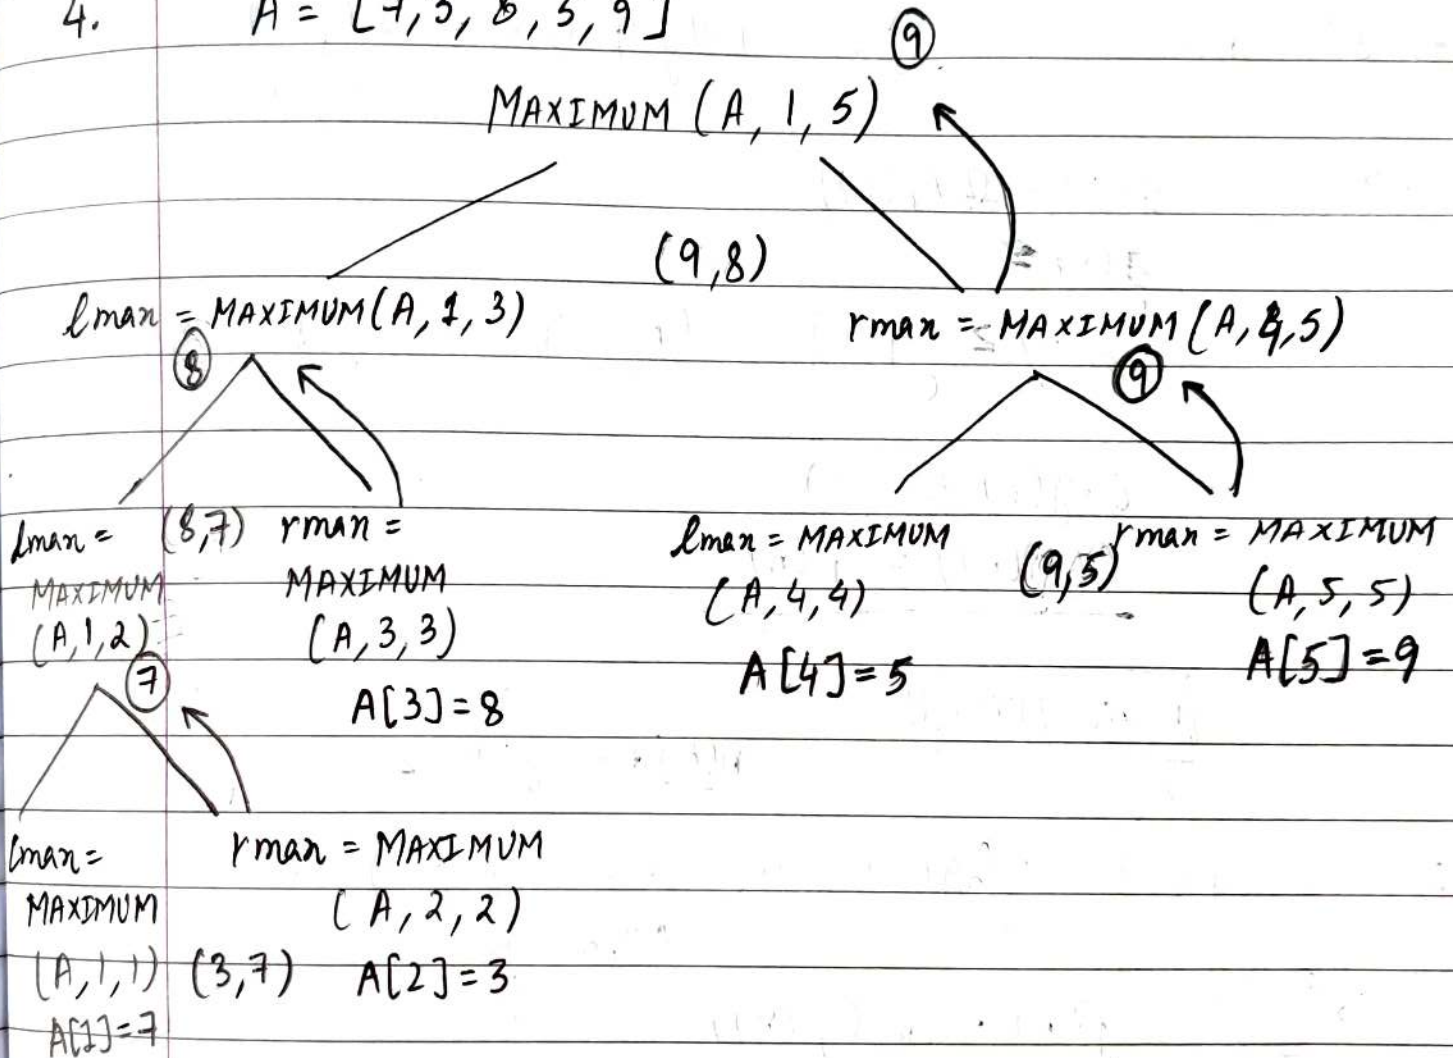 4. A = [7,3,8,5,9]
9
MAXIMUM (A, 1, 5)
(9,8)
lmax = MAXIMUM(A, 1, 3)
rmax = MAXIMUM (A, 4,5)
8
9
lmax = (8,7) rmax =
MAXIMUM
(A,1,2)
MAXIMUM
(A, 3, 3)
A[3]=8
lmax = MAXIMUM
(A, 4, 4)
A[4]=5
(9,5)
rmax = MAXIMUM
(A, 5, 5)
A[5]=9
7
lmax =
MAXIMUM
(A, 1, 1)
A[1]=7
(3,7)
rmax = MAXIMUM
(A, 2, 2)
A[2]=3